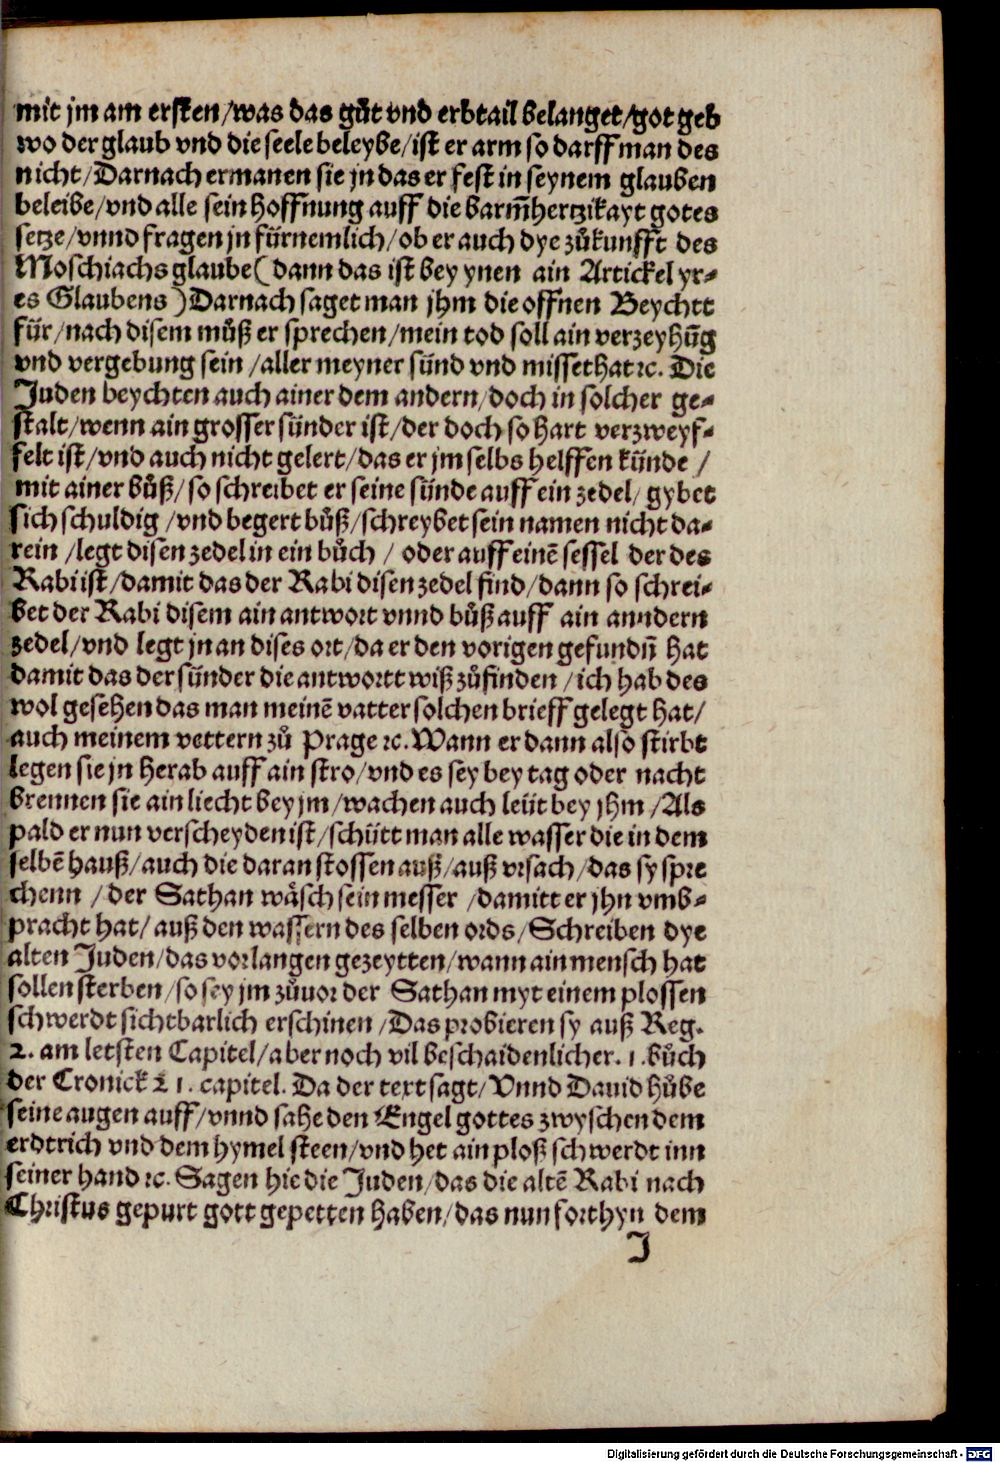 mit jm am ersten/was das gůt vnd erbtail belanget/got geb
wo der glaub vnd die seele beleybe/ist er arm so darff man des
nicht/Darnach ermanen sie jn das er fest in seynem glauben
beleibe/vnd alle sein hoffnung auff die barm̃hertzikayt gotes
setze/vnnd fragen jn fürnemlich/ob er auch dye zůkunfft des
Moschiachs glaube(dann das ist bey ynen ain Artickel yr⸗
es Glaubens)Darnach saget man jhm die offnen Beychtt
für/nach disem můß er sprechen/mein tod soll ain verzeyhũg
vnd vergebung sein/aller meyner sünd vnd missethat ꝛc. Die
Juden beychten auch ainer dem andern/doch in solcher ge⸗
stalt/wenn ain grosser sünder ist/der doch so hart verzweyf⸗
felt ist/vnd auch nicht gelert/das er jm selbs helffen künde/
mit ainer bůß/so schreibet er seine sünde auff ein zedel/gybet
sich schuldig/vnd begert bůß/schreybet sein namen nicht da⸗
rein/legt disen zedel in ein bůch/oder auff einẽ sessel der des
Rabi ist/damit das der Rabi disen zedel find/dann so schrei⸗
bet der Rabi disem ain antwort vnnd bůß auff ain anndern
zedel/vnd legt jn an dises ort/da er den vorigen gefundñ hat
damit das der sünder die antwortt wiß zůfinden/ich hab des
wol gesehen das man meinẽ vatter solchen brieff gelegt hat/
auch meinem vettern zů Prage ꝛc. Wann er dann also stirbt
legen sie jn herab auff ain stro/vnd es sey bey tag oder nacht
brennen sie ain liecht bey jm/wachen auch leüt bey jhm/Als
pald er nun verscheyden ist/schütt man alle wasser die in dem
selbẽ hauß/auch die daran stossen auß/auß vrsach/das sy spre
chenn/der Sathan wäsch sein messer/damitt er jhn vmb⸗
pracht hat/auß den wassern des selben ords/Schreiben dye
alten Juden/das vor langen gezeytten/wann ain mensch hat
sollen sterben/so sey jm zůuor der Sathan myt einem plossen
schwerdt sichtbarlich erschinen/Das probieren sy auß Reg.
2. am letsten Capitel/aber noch vil beschaidenlicher. 1. bůch
der Cronick 21. capitel. Da der text sagt/Vnnd Dauid hůbe
seine augen auff/vnnd sahe den Engel gottes zwyschen dem
erdtrich vnd dem hymel steen/vnd het ain ploß schwerdt inn
seiner hand ꝛc. Sagen hie die Juden/das die altẽ Rabi nach
Christus gepurt gott gepetten haben/das nun forthyn dem
J
Digitalisierung gefördert durch die Deutsche Forschungsgemeinschaft - DFG